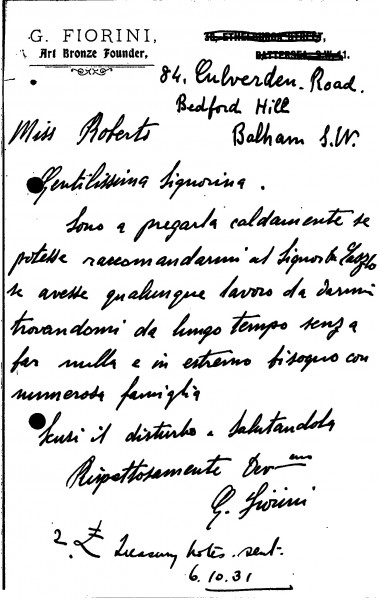 G. FIORINI,
Art Bronze Founder,
28, ETHELBURGA STREET,
BATTERSEA, S.W.11.
84. Culverden. Road.
Bedford Hill
Miss Roberts
Balham S.W.
Gentilissima Signorina.
Sono a pregarla caldamente se
potesse raccomandarmi al Signor de Laszlo
se avesse qualunque lavoro da darmi
trovandomi da lungo tempo senza
far nulla e in estremo bisogno con
numerosa famiglia
Scusi il disturbo e salutandola
Rispettosamente Dev mo
G. Fiorini
2. £ Treasury notes. sent.
6.10.31